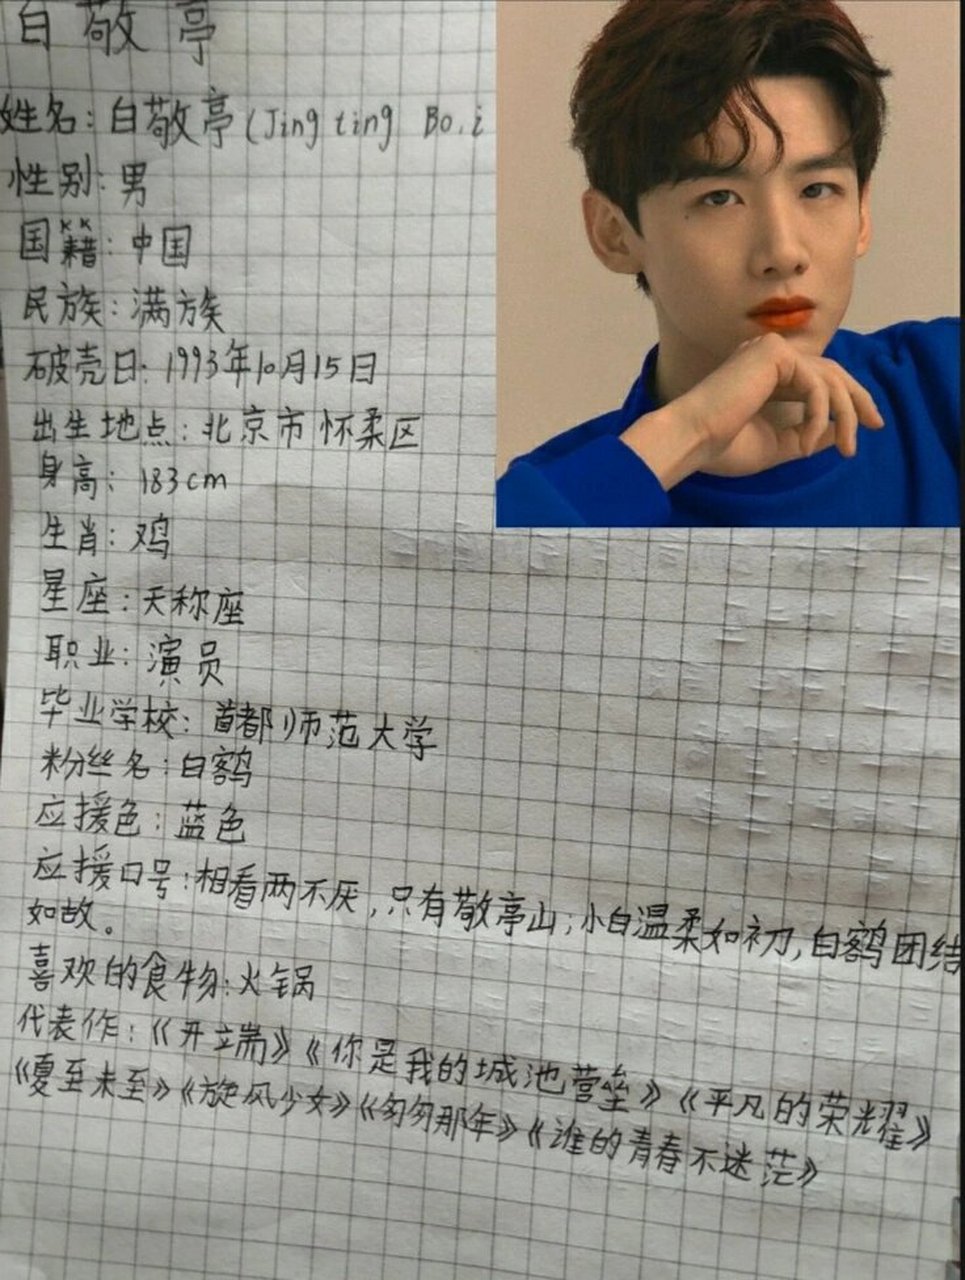 白敬亭
姓名：白敬亭（Jing ting Bai
性别：男
国籍：中国
民族：满族
破壳日：1993年10月15日
出生地点：北京市怀柔区
身高：183cm
生肖：鸡
星座：天称座
职业：演员
毕业学校：首都师范大学
粉丝名：白鹤
应援色：蓝色
应援口号：相看两不厌，只有敬亭山；小白温柔如初，白鹤团结
如故。
喜欢的食物：火锅
代表作：《开端》《你是我的城池营垒》《平凡的荣耀》
《夏至未至》《旋风少女》《匆匆那年》《谁的青春不迷茫》